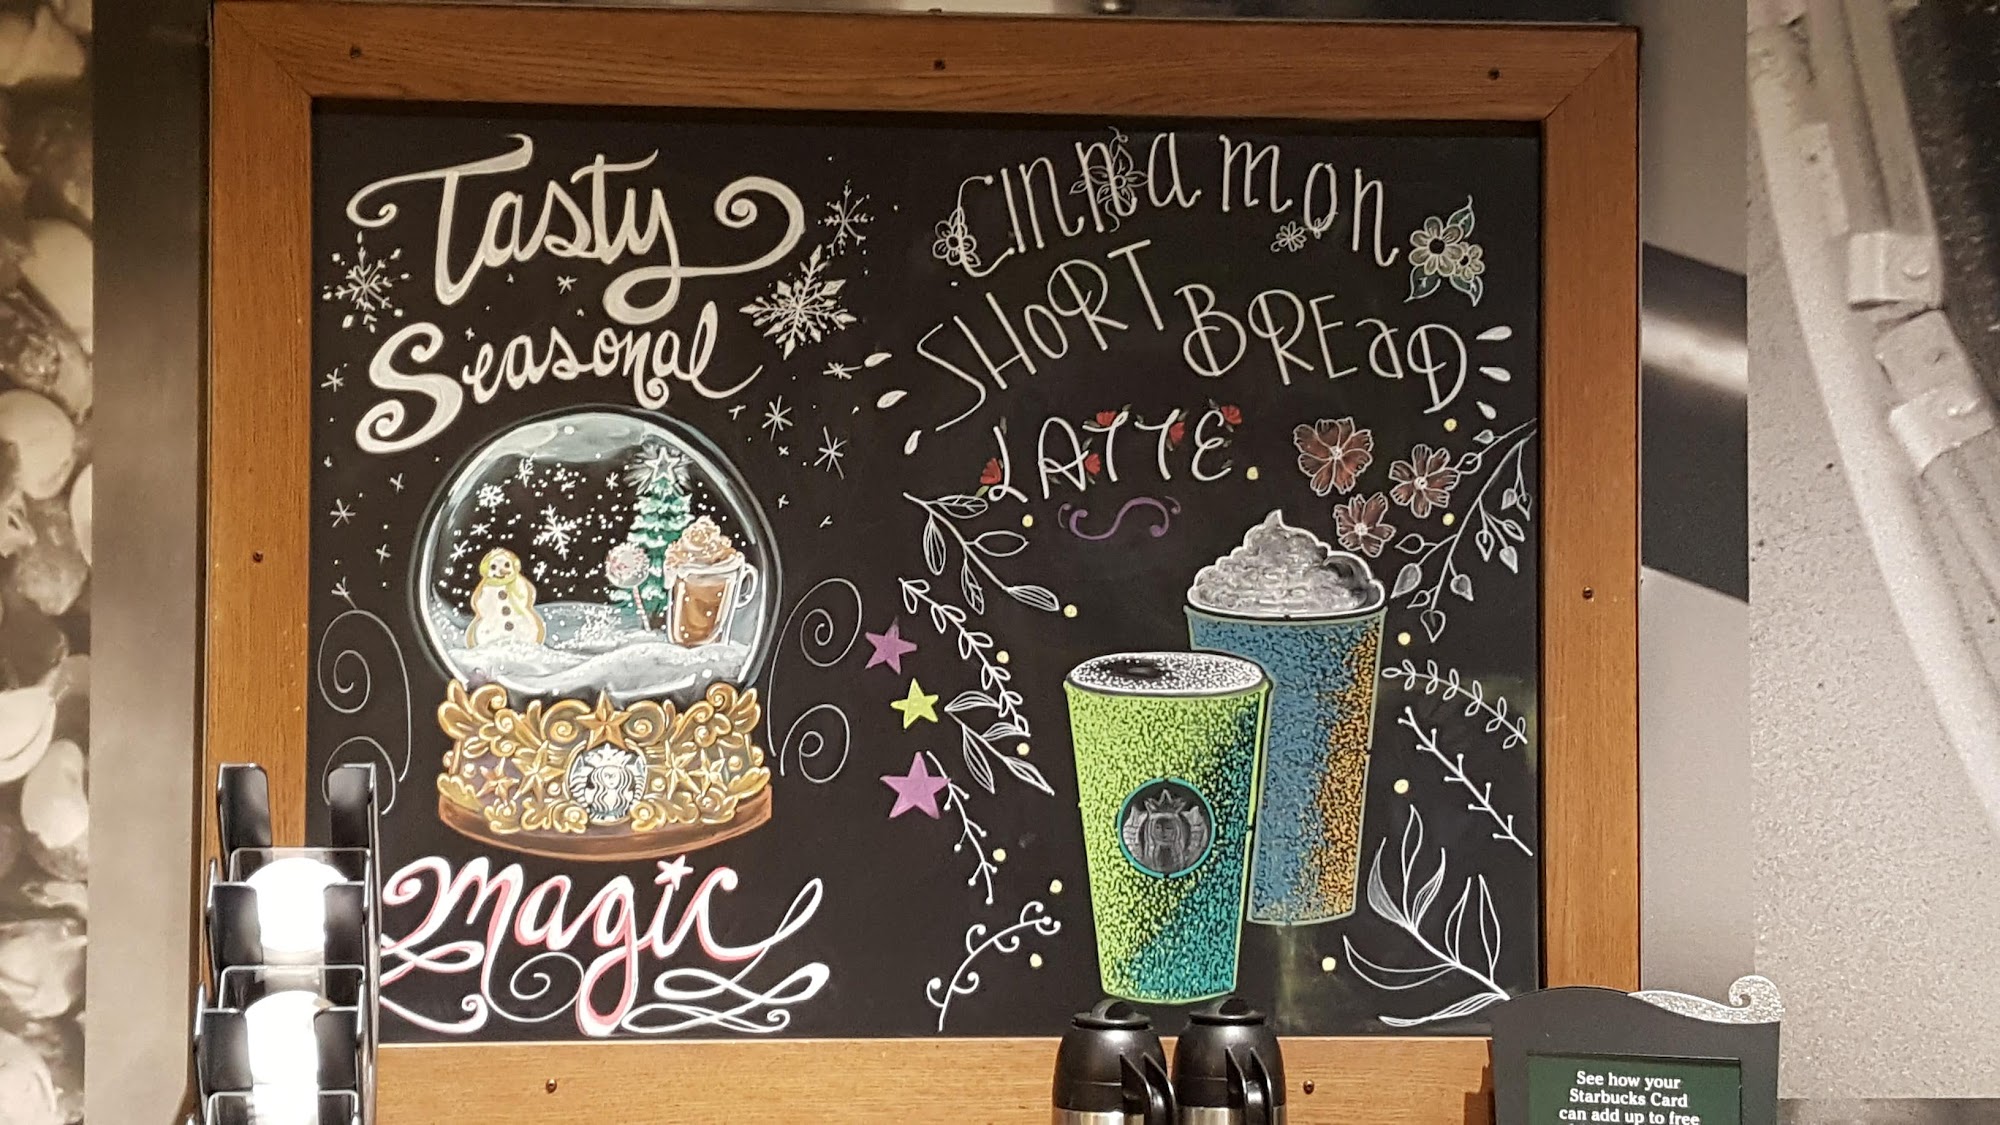 Tasty
Seasonal
Magic
Cinnamon
SHORTBREaD
LATTE
See how your
Starbucks Card
can add up to free